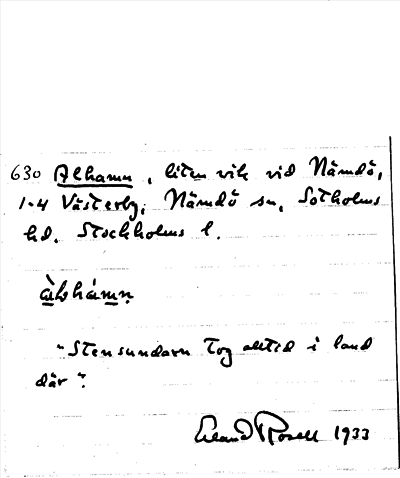 630 Alhamn, liten vik vid Nämdö,
1-4 Västerby, Nämdö sn, Sotholms
hd. Stockholms l.
àlhámn
"Stensundarn tog alltid i land
där".
Erland Rosell 1933